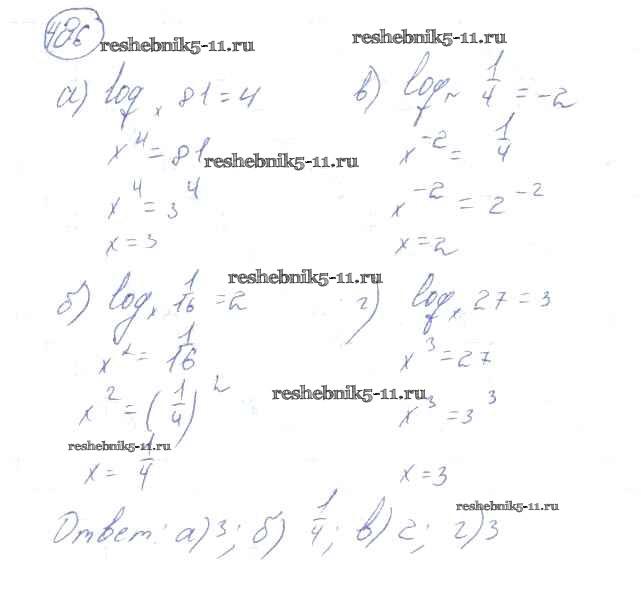 486
reshebnik5-11.ru
reshebnik5-11.ru
а) log x 81 = 4
x^4 = 81
reshebnik5-11.ru
x^4 = 3^4
x = 3
в) log x 1/4 = -2
x^-2 = 1/4
x^-2 = 2^-2
x = 2
reshebnik5-11.ru
б) log x 1/16 = 2
x^2 = 1/16
x^2 = (1/4)^2
reshebnik5-11.ru
x = 1/4
г) log x 27 = 3
x^3 = 27
reshebnik5-11.ru
x^3 = 3^3
x = 3
reshebnik5-11.ru
Ответ: а) 3; б) 1/4; в) 2; г) 3